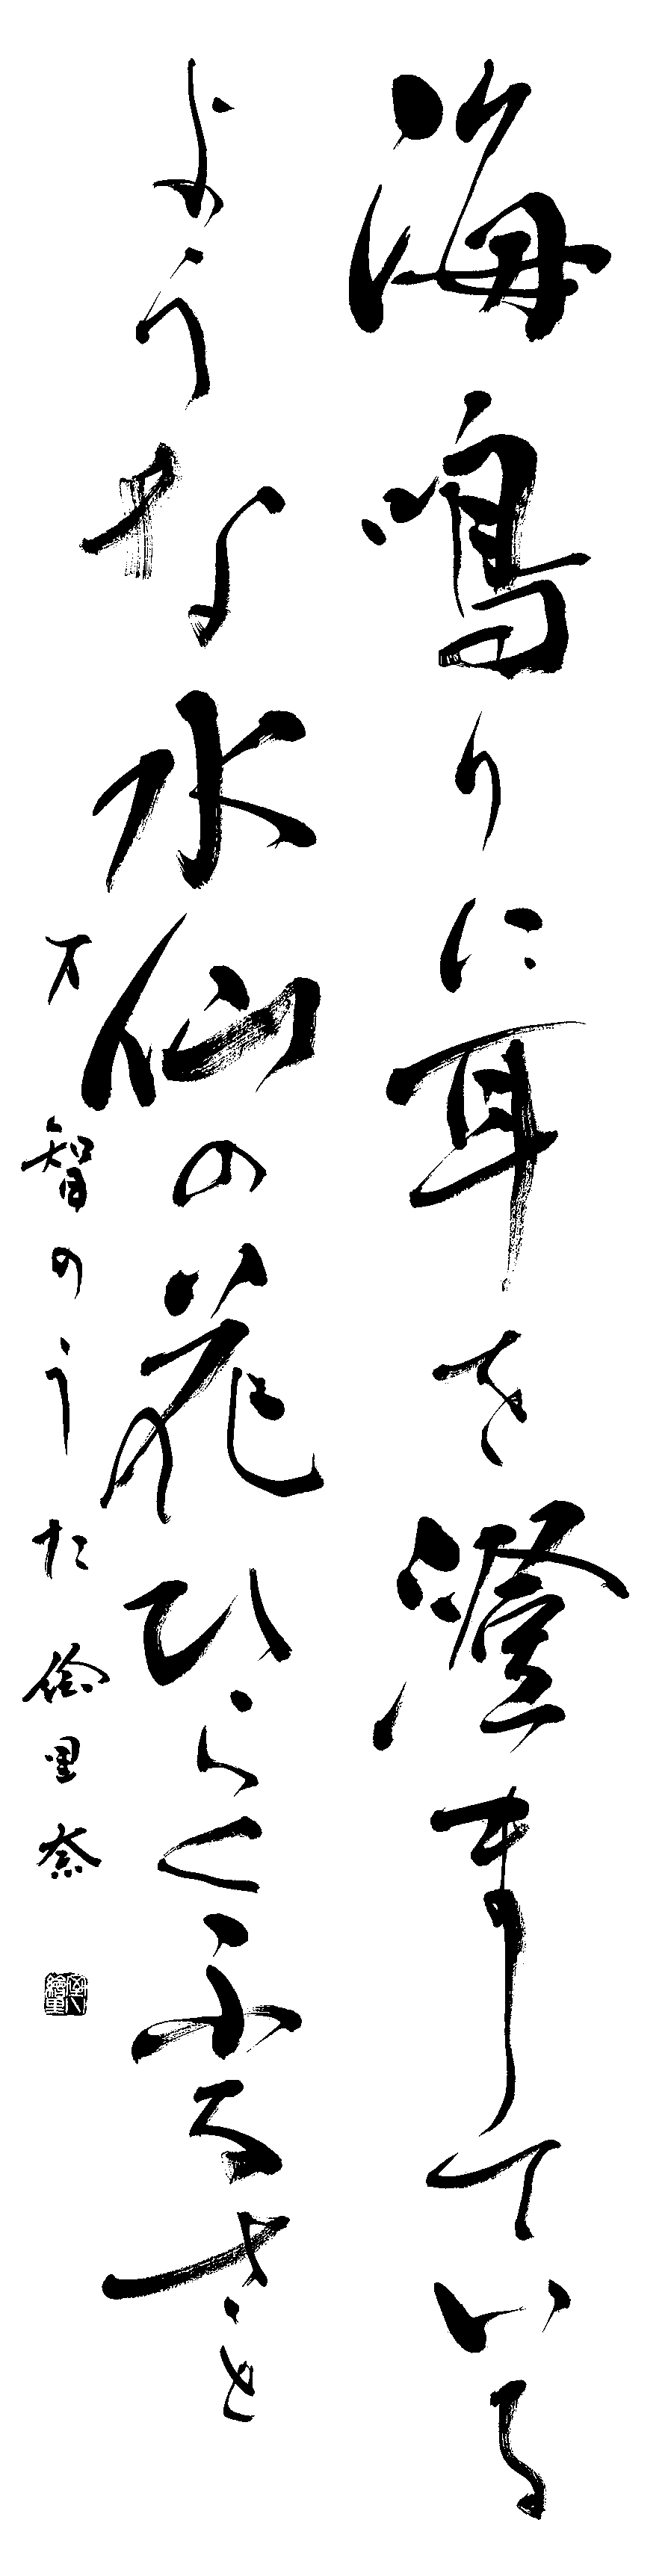 海鳴りに耳を澄ましている
ような水仙の花ひらくふるさと
万智のうた 絵里奈